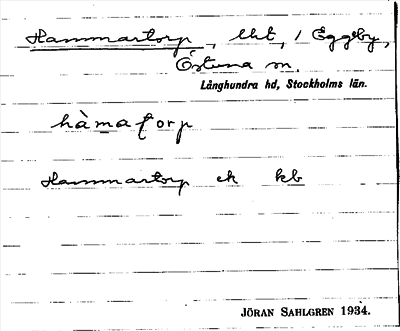 Hammartorp, lht, / Eggeby,
Östuna sn.
Långhundra hd, Stockholms län.
hàmaʈorp
Hammartorp ek kb
JÖRAN SAHLGREN 1934.